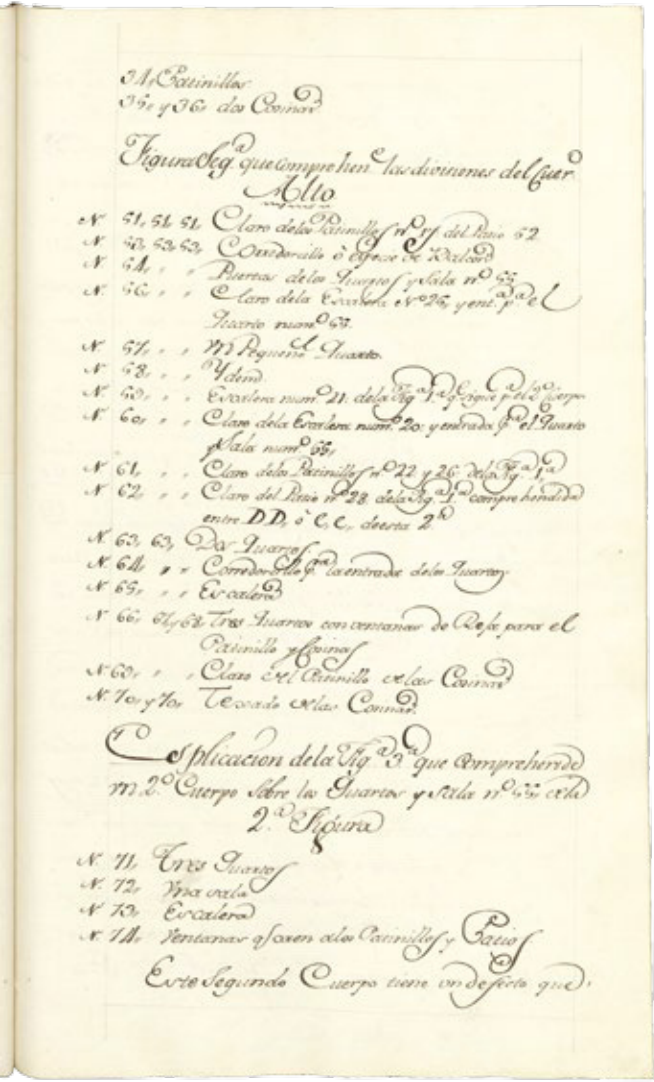 34, Patinillos
35, y 36, dos Cosinas
Figura Seg.ª que comprehen.e las divisiones del Cuer.o
Alto
N. 51, 51, 51, Claro delos Patinillos n.º del Patio 52
N. 53, 53, 53, Corredorcillo ò espasio de Balcon
N. 54, " " Puertas de los Quartos y Sala n.º 55
N. 56, " " Claro dela Escalera N.º 25, y ent.ª p.ª el
Quarto num.º 55.
N. 57, " " Un Pequeño Quarto.
N. 58, " " Ydem.
N. 59, " " Escalera num.º 21. dela Fig.ª 1.ª q.e sigue p.ª el 2.º Cuerpo
N. 60, " " Claro dela Escalera num.º 20, y entrada p.ª el Quarto
y Sala num.º 55,
N. 61, " " Claro delos Patinillos n.º 22 y 26 dela Fig.ª 1.ª
N. 62, " " Claro del Patio n.º 28 dela Fig.ª 1.ª comprehendida
entre D D, ò C, C, de esta 2.ª
N. 63, 63, Dos Quartos.
N. 64, " " Corredorcillo p.ª la entrada delos Quartos
N. 65, " " Escalera
N. 66, 67, y 68, Tres Quartos con ventanas de Reja para el
Patinillo y Cosinas
N. 69, " " Claro del Patinillo delas Cosinas
N. 70, y 70, Texado delas Cosinas.
Esplicacion dela Fig.ª 3.ª que comprehende
un 2.º Cuerpo sobre los Quartos y Sala n.º 55, dela
2.ª Figura
N. 71, Tres Quartos
N. 72, Una sala
N. 73, Escalera
N. 74, Ventanas q. caen alos Patinillos y Patios
Este Segundo Cuerpo tiene un defecto que